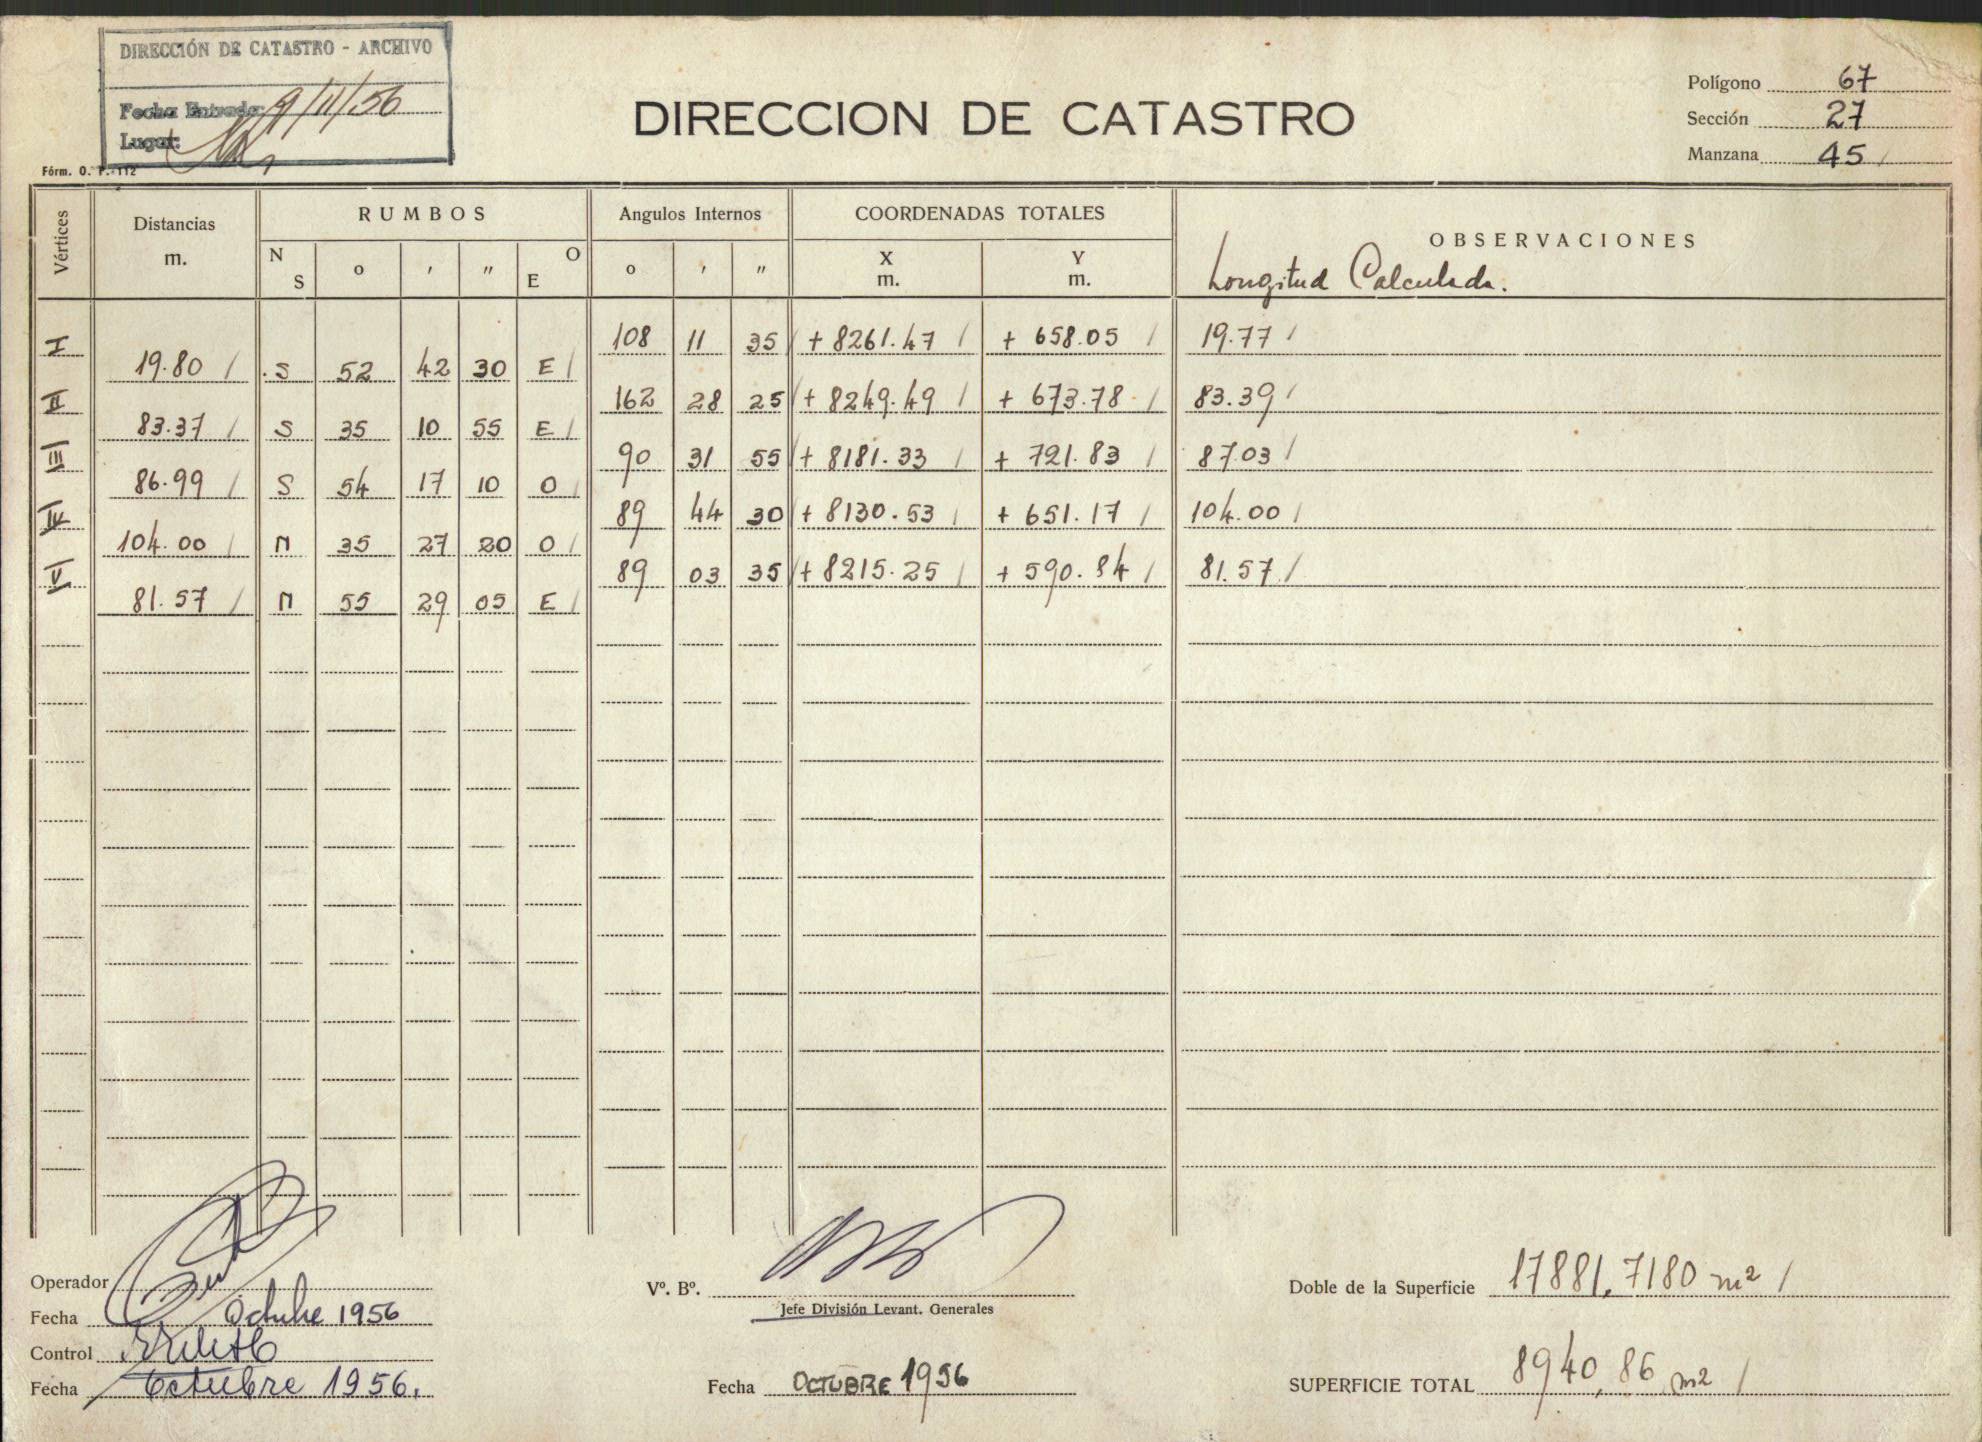 DIRECCIÓN DE CATASTRO - ARCHIVO
Fecha Entrada: 9/11/56
Lugar:
Fórm. O. P.-112
DIRECCION DE CATASTRO
Polígono 67
Sección 27
Manzana 45
Vértices Distancias m. RUMBOS Angulos Internos COORDENADAS TOTALES OBSERVACIONES
N S o ' " E O o ' " X m. Y m. Longitud Calculada.
I 108 11 35 + 8261.47 + 658.05 19.77
19.80 S 52 42 30 E
II 162 28 25 + 8249.49 + 673.78 83.39
83.37 S 35 10 55 E
III 90 31 55 + 8181.33 + 721.83 87.03
86.99 S 54 17 10 O
IV 89 44 30 + 8130.53 + 651.17 104.00
104.00 N 35 27 20 O
V 89 03 35 + 8215.25 + 590.84 81.57
81.57 N 55 29 05 E
Operador
Fecha Octubre 1956
Control
Fecha Octubre 1956.
Vº. Bº.
Jefe División Levant. Generales
Fecha OCTUBRE 1956
Doble de la Superficie 17881,7180 m2
SUPERFICIE TOTAL 8940,86 m2